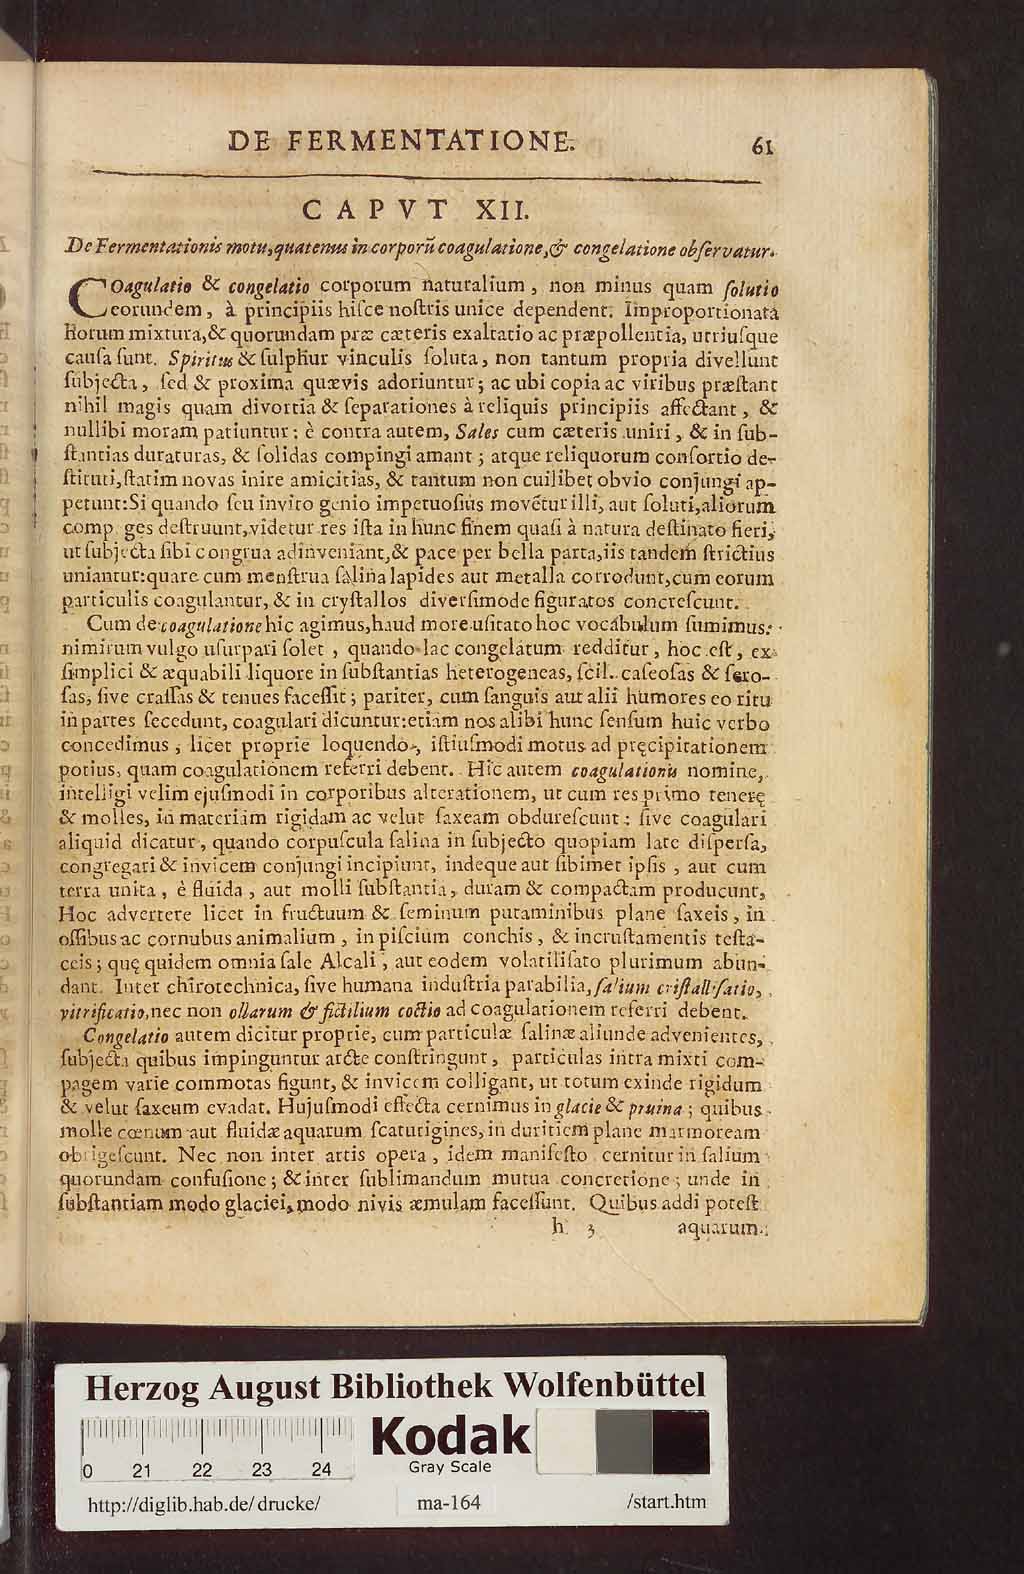 DE FERMENTATIONE. 61
CAPVT XII.
De Fermentationis motu, quatenus in corporũ coagulatione, & congelatione obſervatur.
COagulatio & congelatio corporum naturalium, non minus quam ſolutio
eorundem, à principiis hiſce noſtris unice dependent. Improportionata
horum mixtura, & quorundam præ cæteris exaltatio ac præpollentia, utriuſque
cauſa ſunt. Spiritus & ſulphur vinculis ſoluta, non tantum propria divellunt
ſubjecta, ſed & proxima quævis adoriuntur; ac ubi copia ac viribus præſtant
nihil magis quam divortia & ſeparationes à reliquis principiis affectant, &
nullibi moram patiuntur: è contra autem, Sales cum cæteris uniri, & in ſub-
ſtantias duraturas, & ſolidas compingi amant; atque reliquorum conſortio de-
ſtituti, ſtatim novas inire amicitias, & tantum non cuilibet obvio conjungi ap-
petunt: Si quando ſeu invito genio impetuoſius movẽtur illi, aut ſoluti, aliorum
comp ges deſtruunt, videtur res iſta in hunc finem quaſi à natura deſtinato fieri,
ut ſubjecta ſibi congrua adinveniant, & pace per bella parta, iis tandem ſtrictius
uniantur: quare cum menſtrua ſalina lapides aut metalla corrodunt, cum eorum
particulis coagulantur, & in cryſtallos diverſimode figuratos concreſcunt.
Cum de coagulatione hic agimus, haud more uſitato hoc vocabulum ſumimus:
nimirum vulgo uſurpari ſolet, quando lac congelatum redditur, hoc eſt, ex
ſimplici & æquabili liquore in ſubſtantias heterogeneas, ſcil. caſeoſas & ſero-
ſas, ſive craſſas & tenues faceſſit; pariter, cum ſanguis aut alii humores eo ritu
in partes ſecedunt, coagulari dicuntur: etiam nos alibi hunc ſenſum huic verbo
concedimus, licet proprie loquendo, iſtiuſmodi motus ad pręcipitationem
potius, quam coagulationem referri debent. Hic autem coagulationis nomine,
intelligi velim ejuſmodi in corporibus alterationem, ut cum res primo tenerę
& molles, in materiam rigidam ac velut ſaxeam obdureſcunt: ſive coagulari
aliquid dicatur, quando corpuſcula ſalina in ſubjecto quopiam late diſperſa,
congregari & invicem conjungi incipiunt, indeque aut ſibimet ipſis, aut cum
terra unita, è fluida, aut molli ſubſtantia, duram & compactam producunt,
Hoc advertere licet in fructuum & ſeminum putaminibus plane ſaxeis, in
oſſibus ac cornubus animalium, in piſcium conchis, & incruſtamentis teſta-
ceis; quę quidem omnia ſale Alcali, aut eodem volatiliſato plurimum abun-
dant. Inter chirotechnica, ſive humana induſtria parabilia, ſalium criſtalliſatio,
vitrificatio, nec non ollarum & fictilium coctio ad coagulationem referri debent.
Congelatio autem dicitur proprie, cum particulæ ſalinæ aliunde advenientes,
ſubjecta quibus impinguntur arcte conſtringunt, particulas intra mixti com-
pagem varie commotas figunt, & invicem colligant, ut totum exinde rigidum
& velut ſaxeum evadat. Hujuſmodi effecta cernimus in glacie & pruina; quibus
molle cœnum aut fluidæ aquarum ſcaturigines, in duritiem plane marmoream
obrigeſcunt. Nec non inter artis opera, idem manifeſto cernitur in ſalium
quorundam confuſione; & inter ſublimandum mutua concretione; unde in
ſubſtantiam modo glaciei, modo nivis æmulam faceſſunt. Quibus addi poteſt
h 3 aquarum
Herzog August Bibliothek Wolfenbüttel
0 21 22 23 24
Kodak
Gray Scale
http://diglib.hab.de/drucke/ ma-164 /start.htm